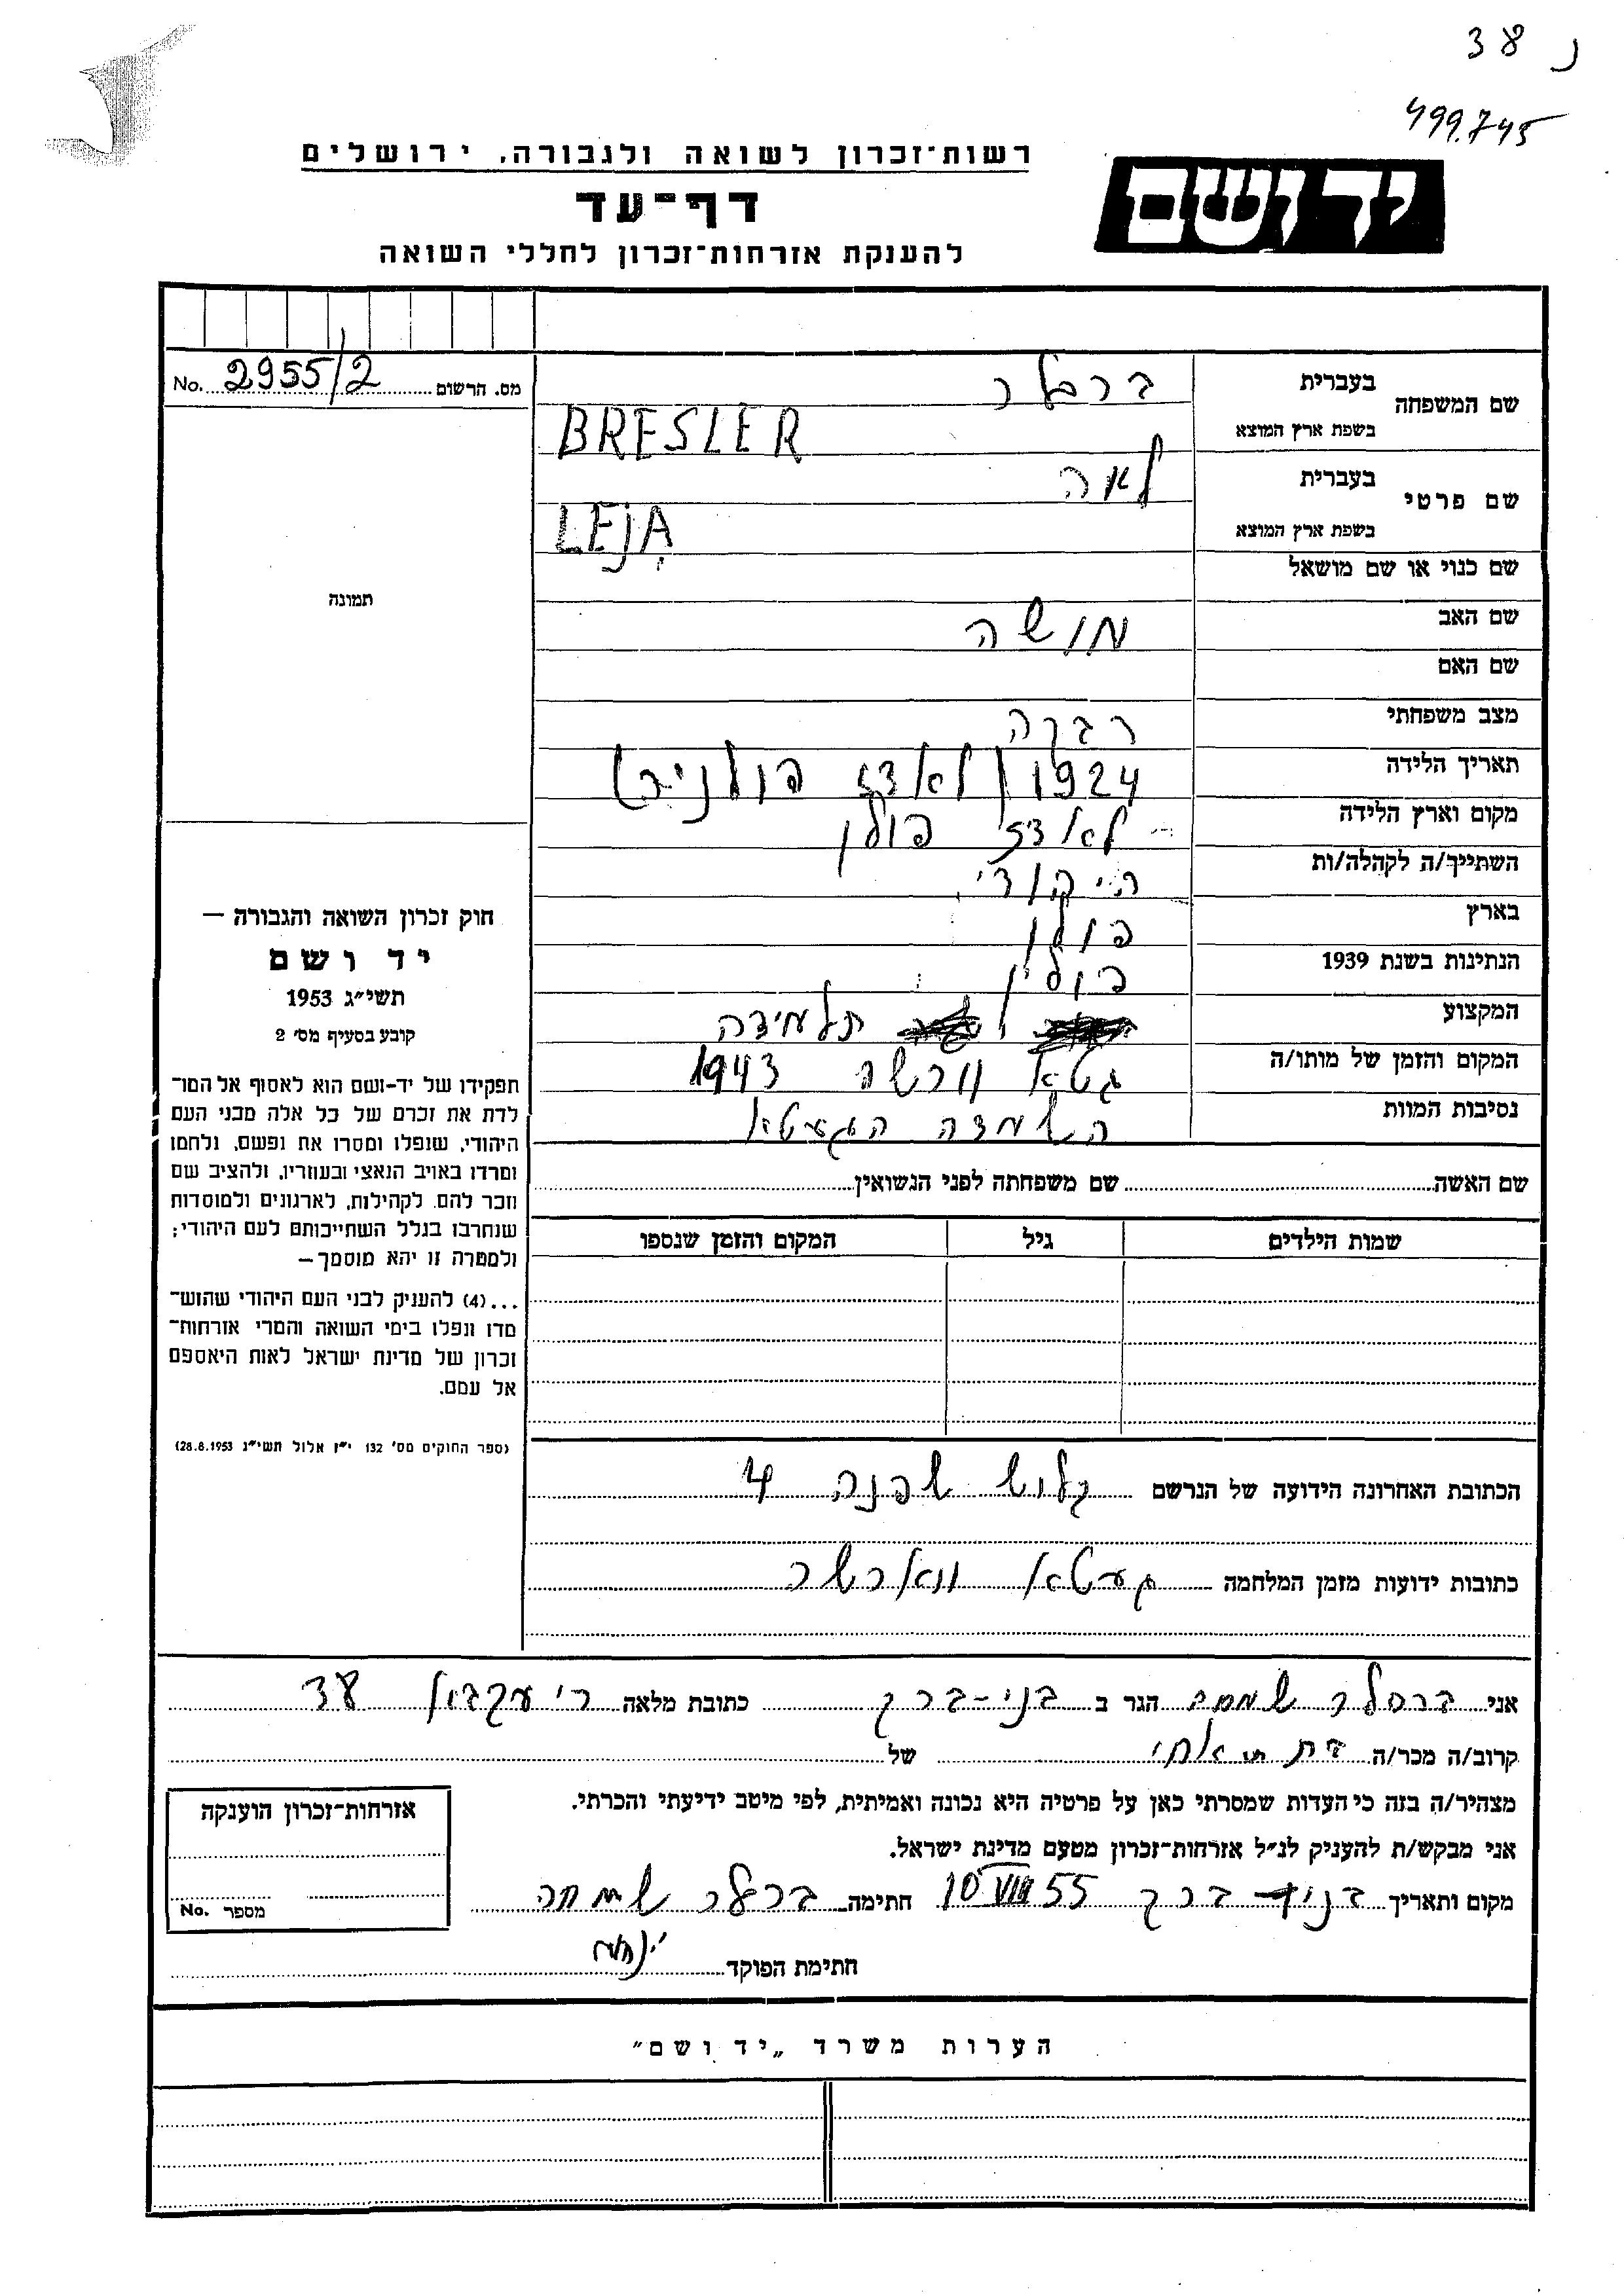 נ 38
499.745
רשות־זכרון לשואה ולגבורה, ירושלים
יד ושם
דף־עד
להענקת אזרחות־זכרון לחללי השואה
מס. הרשום 2955/2 No.
שם המשפחה
בעברית ברסלר
בשפת ארץ המוצא BRESLER
שם פרטי
בעברית לאה
בשפת ארץ המוצא LEJA
שם כנוי או שם מושאל
שם האב מושה
שם האם
מצב משפחתי רבקה
תאריך הלידה 1924
מקום וארץ הלידה לאדז פולן
השתייך/ה לקהלה/ות
בארץ פולן
הנתינות בשנת 1939 פולין
המקצוע תלמידה
המקום והזמן של מותו/ה גטא וורשה 1943
נסיבות המוות השמדה הגעטא
תמונה
חוק זכרון השואה והגבורה —
יד ושם
תשי״ג 1953
קובע בסעיף מס׳ 2
תפקידו של יד-ושם הוא לאסוף אל המו־
לדת את זכרם של כל אלה מבני העם
היהודי, שנפלו ומסרו את נפשם, נלחמו
ומרדו באויב הנאצי ובעוזריו, ולהציב שם
וזכר להם, לקהילות, לארגונים ולמוסדות
שנחרבו בגלל השתייכותם לעם היהודי;
ולמטרה זו יהא מוסמך—
...(4) להעניק לבני העם היהודי שהוש־
מדו ונפלו בימי השואה והמרי אזרחות־
זכרון של מדינת ישראל לאות היאספם
אל עמם.
(ספר החוקים מס׳ 132 י״ז אלול תשי״ג 28.8.1953)
שם האשה שם משפחתה לפני הנשואין
שמות הילדים גיל המקום והזמן שנספו
הכתובת האחרונה הידועה של הנרשם 4
כתובות ידועות מזמן המלחמה געטא ווארשה
אני ברסלר שמחה הגר ב בני-ברק כתובת מלאה 38
קרוב/ה מכר/ה של
מצהיר/ה בזה כי העדות שמסרתי כאן על פרטיה היא נכונה ואמיתית, לפי מיטב ידיעתי והכרתי.
אני מבקש/ת להעניק לנ״ל אזרחות־זכרון מטעם מדינת ישראל.
מקום ותאריך ברק 10 VIII 55 חתימה ברסלר שמחה
חתימת הפוקד
אזרחות־זכרון הוענקה
מספר No.
הערות משרד „יד ושם״